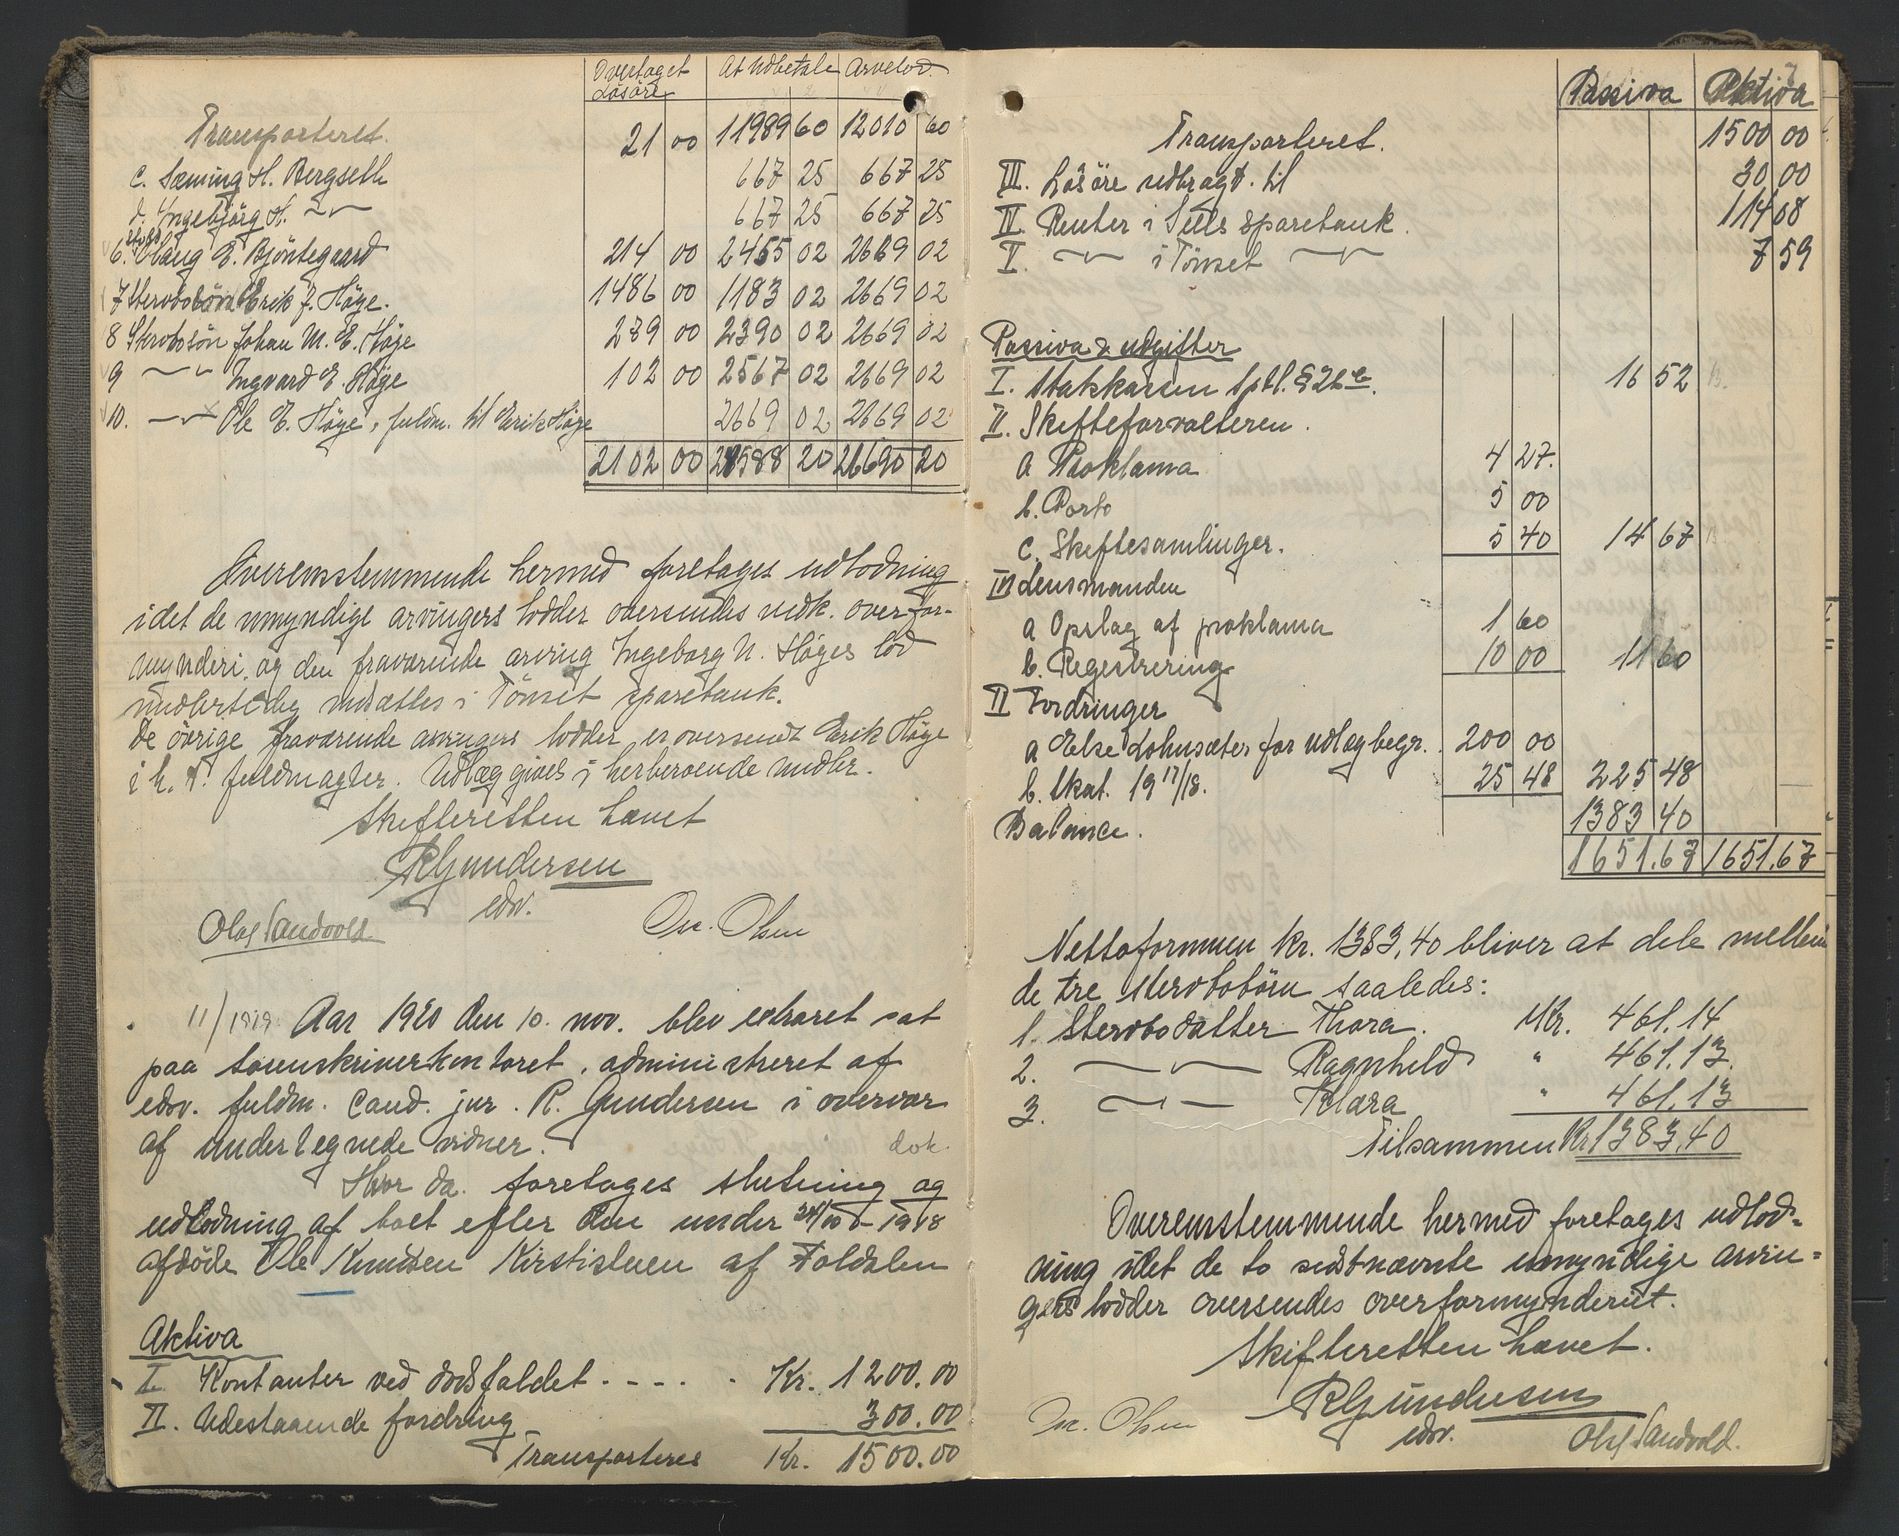 Overtaget At udbetale Arvelod.
Løsöre
Transporteret. 21 00 11989 60 12010 60
c. Sæming H. Bergseth 667 25 667 25
d. Ingebjörg H. —"— 667 25 667 25
6. Haug E. Bjöntegaard 214 00 2455 02 2669 02
7 Stervbosön Erik J. Høge. 1486 00 1183 02 2669 02
8 Stervbosön Johan M. E. Høge 279 00 2390 02 2669 02
9 —"— Ingvard E. Høge 102 00 2567 02 2669 02
10. —"— Ole E. Høge, fuldm. til Erik Høge 2669 02 2669 02
2102 00 24588 20 26690 20
Overemsstemmende hermed foretages udlodning
idet de umyndige arvingers lodder oversendes vedk. overfor-
mynderi, og den fraværende arving Ingeborg N. Høges lod
midlertidig indsættes i Tönset sparebank.
De övrige fraværende arvingers lodder er oversendt Erik Høge
i h. t. fuldmagter. Udlæg gives i herberoende midler.
Skifteretten hævet
RGundersen
edsv.
Olaf Sandvold Osc. Olsen
11/1919. Aar 1920 den 10. nov. blev extraret sat
paa sorenskriverkontoret, administreret af
edsv. fuldm. cand. jur. R. Gundersen i overvær
af undertegnede vidner.
dok.
Hvor da. foretages slutning og
udlodning af boet efter den under 24/10 - 1918
afdöde Ole Knudsen Kirstistuen af Foldalen
Aktiva
I. Kontanter ved dödsfaldet . - - - . Kr. 1200.00
II. Udestaaende fordring 300.00
Transporteres Kr. 1500.00
Passiva Aktiva
Transporteret. 1500 00
III. Løsöre udbragt til 30 00
IV. Renter i Sells sparebank. 114 08
V. —"— i Tönset —"— 7 59
Passiva & udgifter
I. Statskassen Spbl. § 26 b. 16 52
II. Skifteforvalteren.
a Proklama 4 27.
b. Porto 5 00
c. Skiftesamlinger. 5 40 14 67
III Lensmanden
a Opslag af proklama 1 60
b. Regestrering 10 00 11 60
IV Fordringer
a Else Lohnsæter for udlæg begr. 200 00
b. Skat. 19 17/18. 25 48 225 48
Balance. 1383 40
1651.67 1651.67
Nettoformuen kr. 1383,40 bliver at dele mellem
de tre stervbobörn saaledes:
1. Stervbodatter Thora. Kr. 461.14
2. —"— Ragnhild " 461.13.
3. —"— Klara " 461.13
Tilsammen Kr. 1383,40
Overemsstemmende hermed foretages udlod-
ning idet de to sidstnævnte umyndige arvin-
gers lodder oversendes overformynderiet.
Skifteretten hævet.
RGundersen
edsv.
Osc. Olsen Olaf Sandvold.